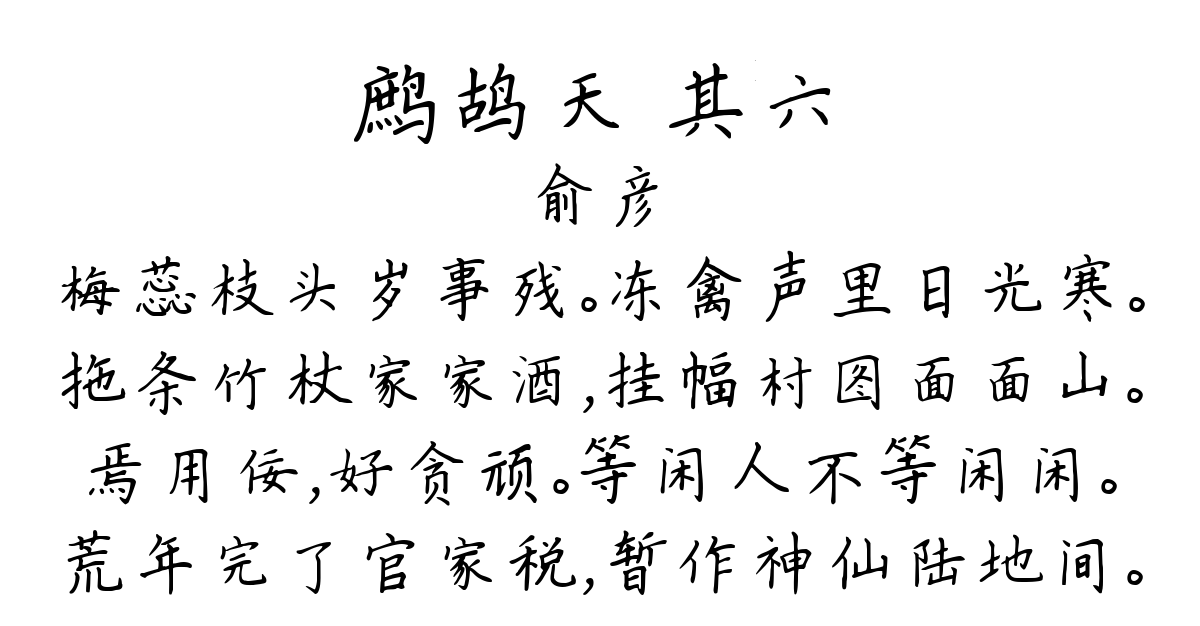 鹧鸪天 其六
俞彦
梅蕊枝头岁事残。冻禽声里日光寒。
拖条竹杖家家酒,挂幅村图面面山。
焉用佞,好贪顽。等闲人不等闲闲。
荒年完了官家税,暂作神仙陆地间。